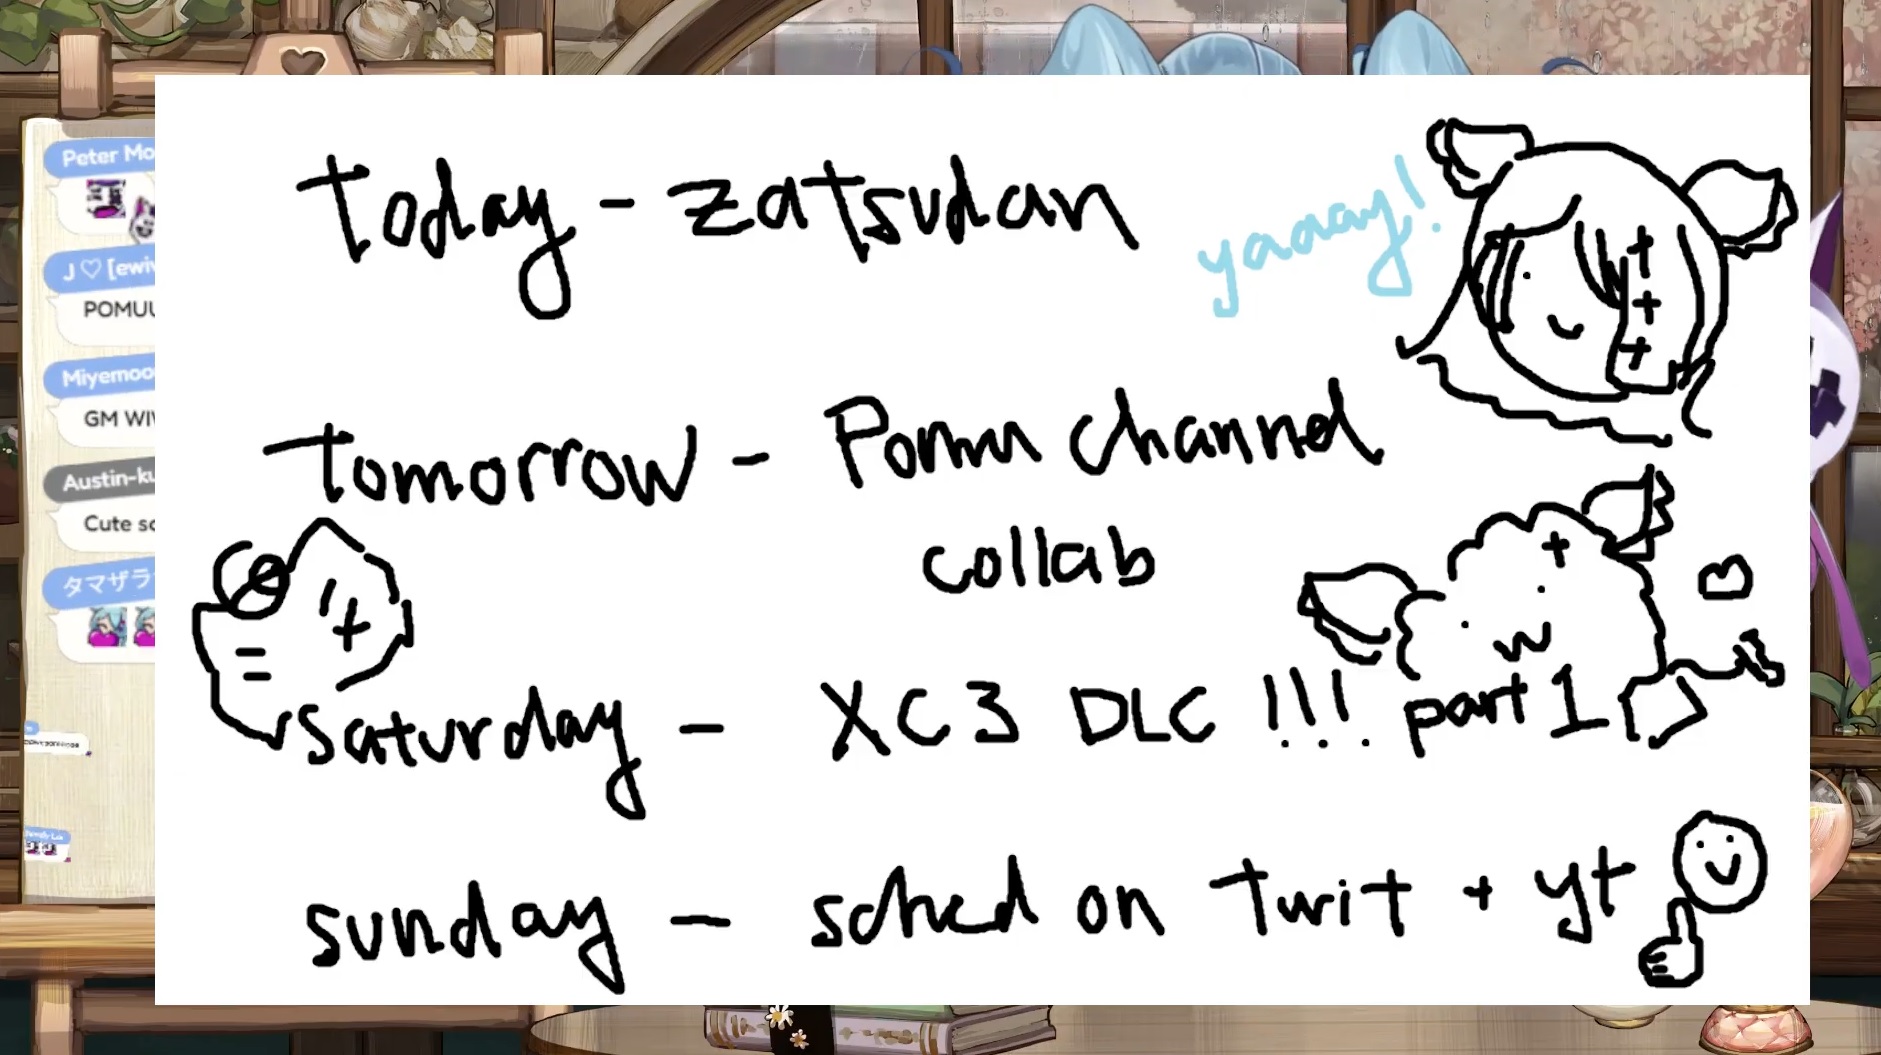 Peter Mo
J ♡ [ewiv
POMUU
Miyemoo
GM WIV
Austin-ku
Cute so
タマザラ
today - zatsudan
yaaay!
tomorrow - Pomu channel
collab
saturday - XC3 DLC !!! part 1
sunday - sched on Twit + yt